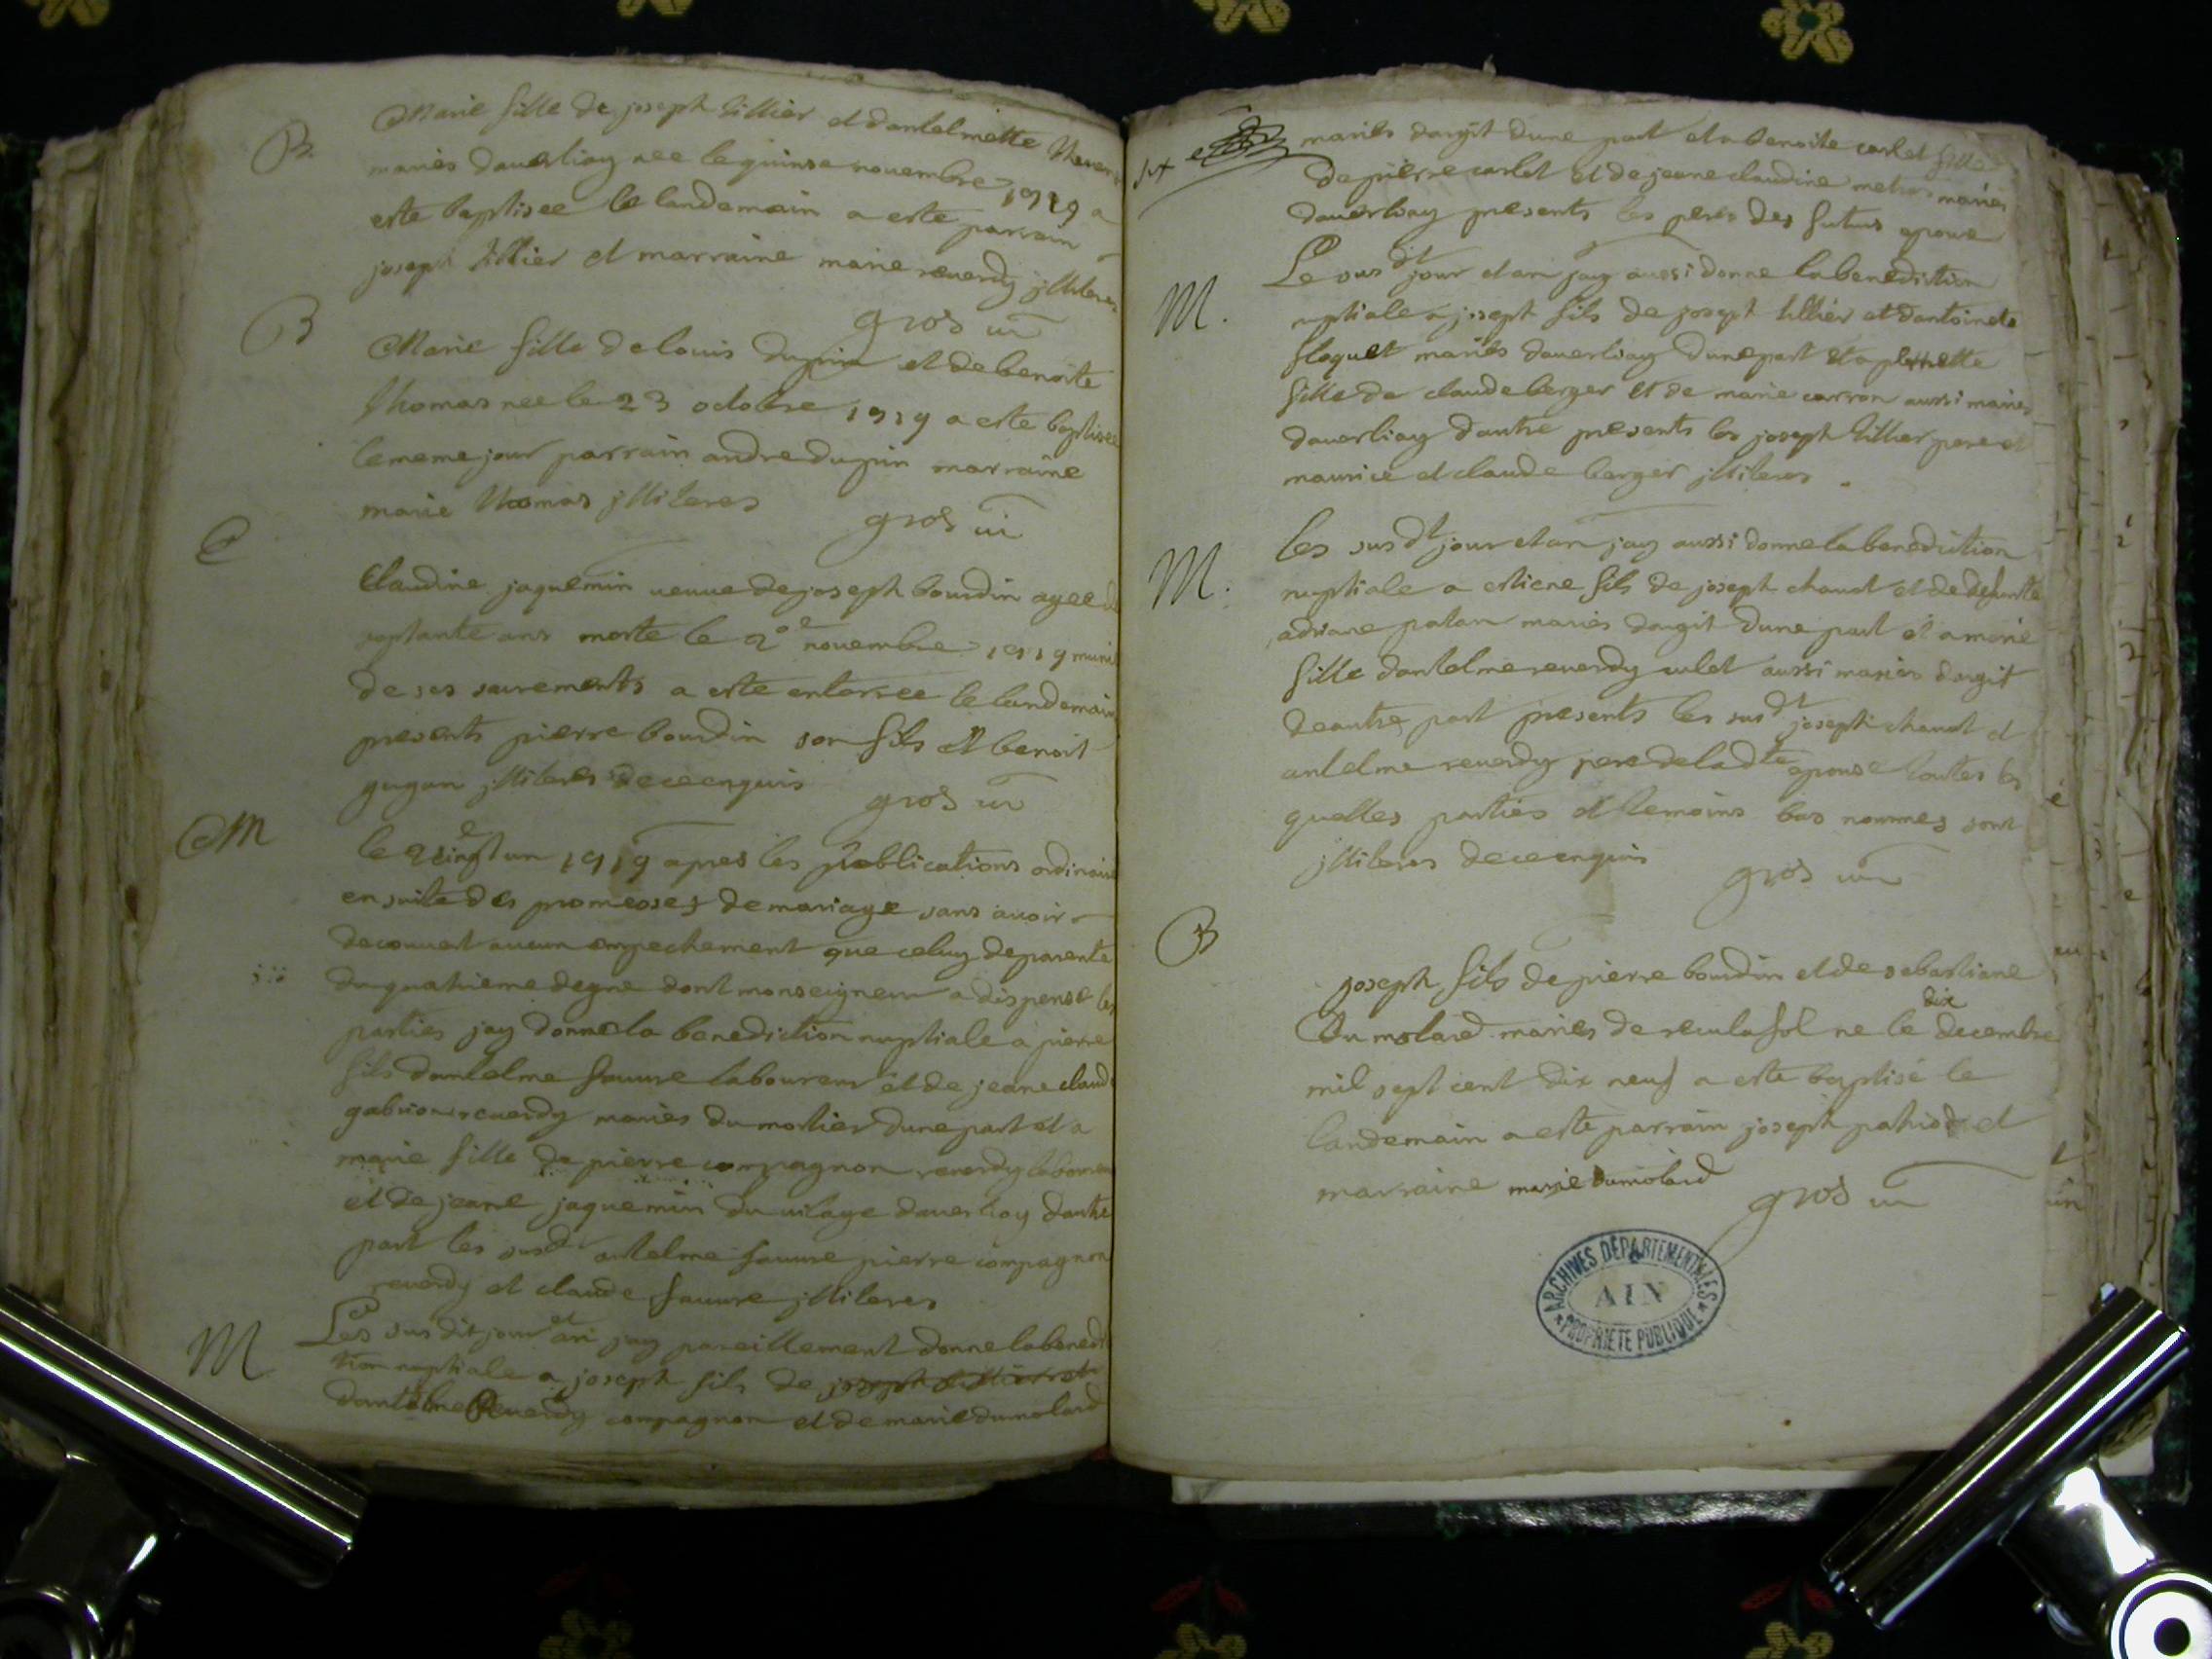 B.
Marie fille de joseph tillier et dantelmette
mariés dauerliay nee le quinse nouembre 1719 a
este baptisee le landemain a este parrain
joseph tillier et marraine marie reuerdy jlliteres
gros ur
B
Marie fille de louis dupin et de benoite
thomas nee le 23 octobre 1719 a este baptisee
le meme jour parrain andre dupin marraine
marie thomas jlliteres
gros ur
Claudine jaquemin ueuue de joseph bourdin agee de
septante ans morte le 2 nouembre 1719 munie
de ses sacrements a este enterree le landemain
presents pierre bourdin son fils et benoit
gugan jlliteres de ce enquis
gros ur
M
le 1719 apres les publications ordinaires
en suite des promesses de mariage sans auoir
decouuert aucun empechement que celuy de parente
du quatrieme degre dont monseigneur a dispense les
parties jay donne la benediction nuptiale a pierre
fils dantelme fauure laboureur et de jeane claude
gabrion reuerdy mariés du mortier dune part et a
marie fille de pierre compagnon reuerdy laboureur
et de jeane jaquemin du uilage dauerliay dautre
part les susd antelme fauure pierre compagnon
reuerdy et claude fauure jlliteres
M
Les sus dit jour et an jay pareillement donne la benedi
tion nuptiale a joseph fils de
dantelme Reuerdy compagnon et de marie dumolard
mariés dargit dune part et a benoite carlet fille
de pierre carlet et de jeane claudine metras mariés
dauerliay presents les peres des futurs epoux
M.
Le sus dt jour et an jay aussi donne la benediction
nuptiale a joseph fils de joseph tillier et dantoinete
floquet mariés dauerliay dune part et a pernette
fille de claude berger et de marie carron aussi mariés
dauerliay dautre presents les joseph tillier pere et
maurice et claude berger jlliteres
M.
les sus dt jour et an jay aussi donne la benediction
nuptiale a estiene fils de joseph chanot et de defunte
adriane patan mariés dargit dune part et a marie
fille dantelme reuerdy culet aussi mariés dargit
de autre part presents les sus dt joseph chanot et
antelme reuerdy pere de la dte epouse toutes les
quelles parties et temoins bas nommes sont
jlliteres de ce enquis
gros ur
B
joseph fils de pierre bourdin et de sebastiane
dix
Du molard mariés de reculafol ne le decembre
mil sept cent dix neuf a este baptisé le
landemain a este parrain joseph et
marraine marie dumolard
gros ur
ARCHIVES DÉPARTEMENTALES
AIN
PROPRIÉTÉ PUBLIQUE